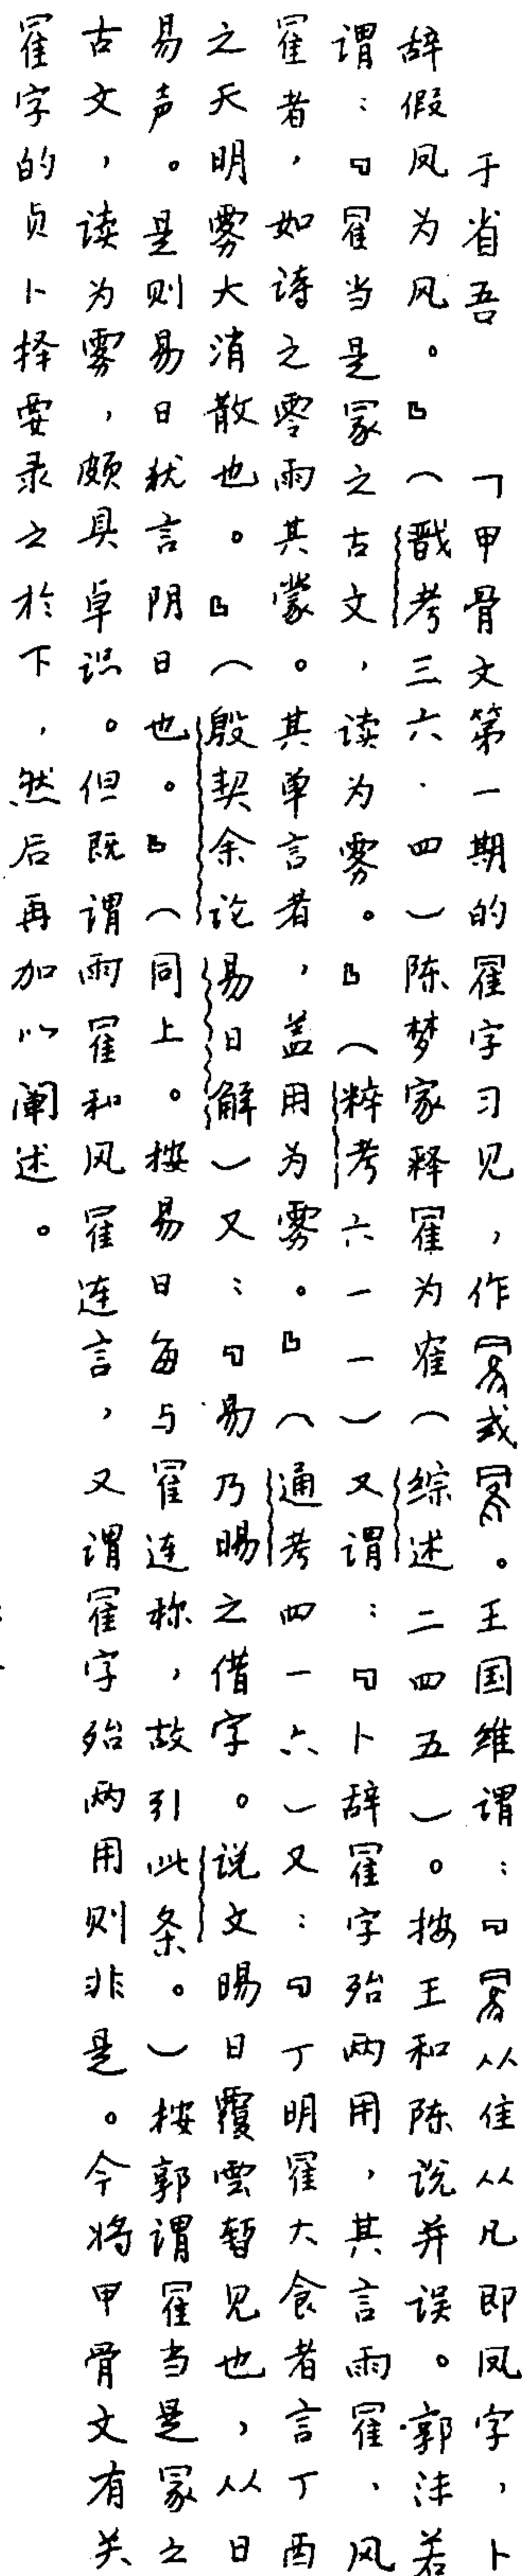 于省吾　「甲骨文第一期的䍜字习见，作或。王国维谓：『从隹从凡即凤字，卜
辞假凤为风。』（戬考三六·四）陈梦家释䍜为寉（综述二四五）。按王和陈说并误。郭沫若
谓：『䍜当是冡之古文，读为雾。』（粹考六一一）又谓：『卜辞䍜字殆两用，其言雨䍜、风
䍜者，如诗之零雨其蒙。其单言者，盖用为雾。』（通考四一六）又：『丁明䍜大食者言丁酉
之天明雾大消散也。』（殷契余论易日解）又：『易乃晹之借字。说文晹日覆雲暂见也，从日
易声。是则易日犹言阴日也。』（同上。按易日每与䍜连称，故引此条。）按郭谓䍜当是冡之
古文，读为雾，颇具卓识。但既谓雨䍜和风䍜连言，又谓䍜字殆两用则非是。今将甲骨文有关
䍜字的贞卜择要录之於下，然后再加以阐述。